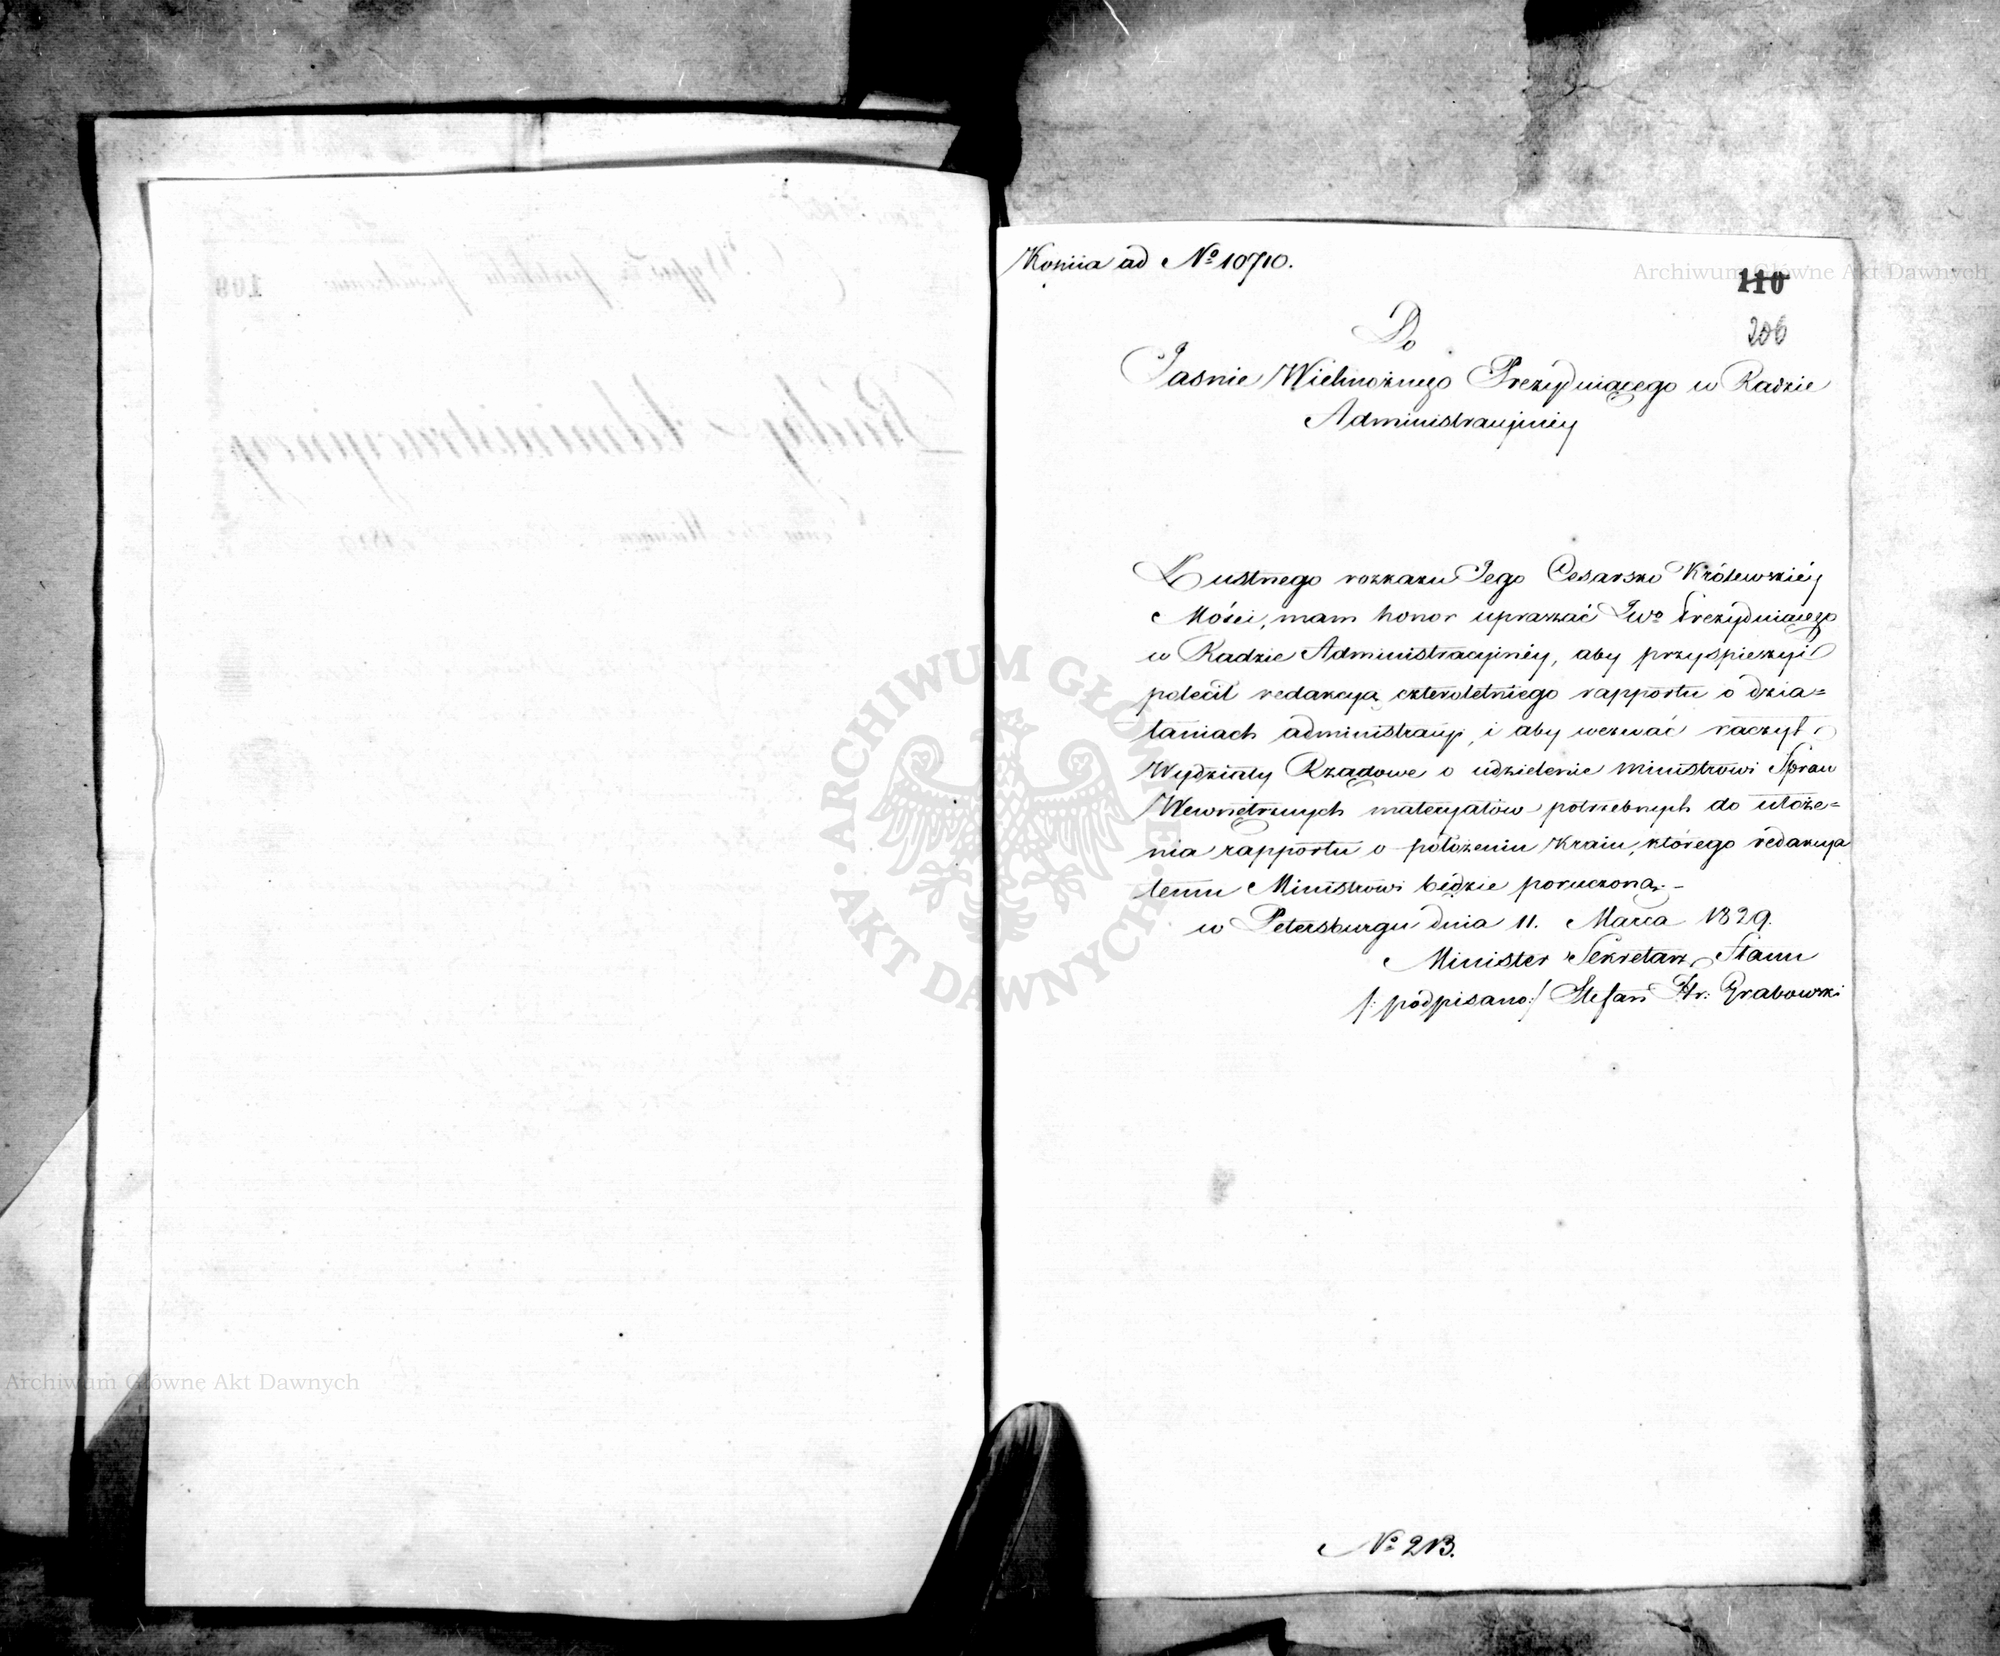 Kopiia ad Nº 10710.
110
206
Do
Jasnie Wielmożnego Prezyduiącego w Radzie
Administracyiney
Z ustnego rozkazu Jego Cesarsko Królewskiéy
Mości, mam honor upraszać JWº Prezyduiącego
w Radzie Administracyinéy, aby przyspieszyć
polecił redakcyą czteroletniego rapportu o dzia=
łaniach administracyi, i aby wezwać raczył
Wydziały Rządowe o udzielenie Ministrowi Spraw
Wewnętrznych materyałów potrzebnych do ułoże=
nia rapportu o położeniu Kraiu, którego redakcya
temu Ministrowi będzie poruczona. –
w Petersburgu dnia 11. Marca 1829.
Minister Sekretarz Stanu
/: podpisano :/ Stefan Hr: Grabowski
Nº 213.
Archiwum Główne Akt Dawnych
ARCHIWUM GŁÓWNE AKT DAWNYCH
Archiwum Główne Akt Dawnych